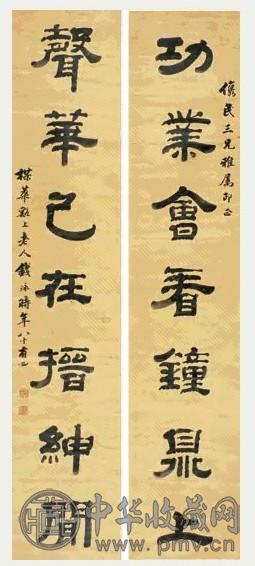 儁民三兄雅屬即正
功業會看鐘鼎上
聲華已在搢紳間
楳華谿上老人錢泳時年八十有
中华收藏网
www.pmv.cn